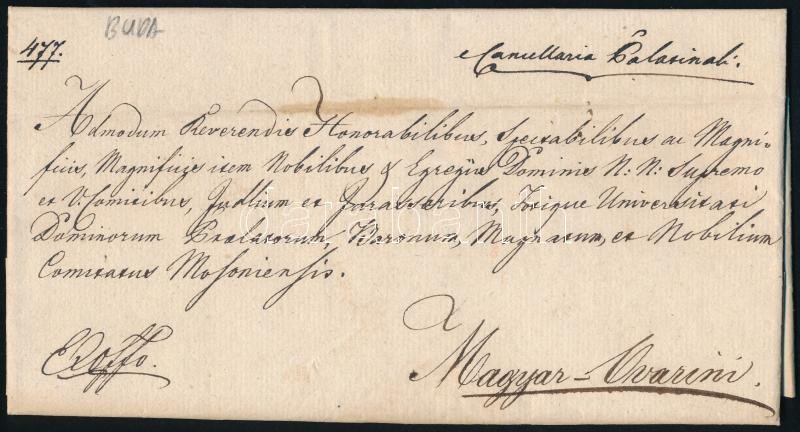 BUDA
477.
e Cancellaria Palatinali.
Admodum Reverendis Honorabilibus, Spectabilibus ac Magni-
ficis, Magnificis item Nobilibus & Egregiis Dominis N: N: Supremo
et V: Comitibus, Judlium et Jurassoribus, Totique Universitati
Dominorum Praelatorum, Baronum, Magnatum, et Nobilium
Comitatus Mosoniensis.
Ex offo.
Magyar-Ovarini.